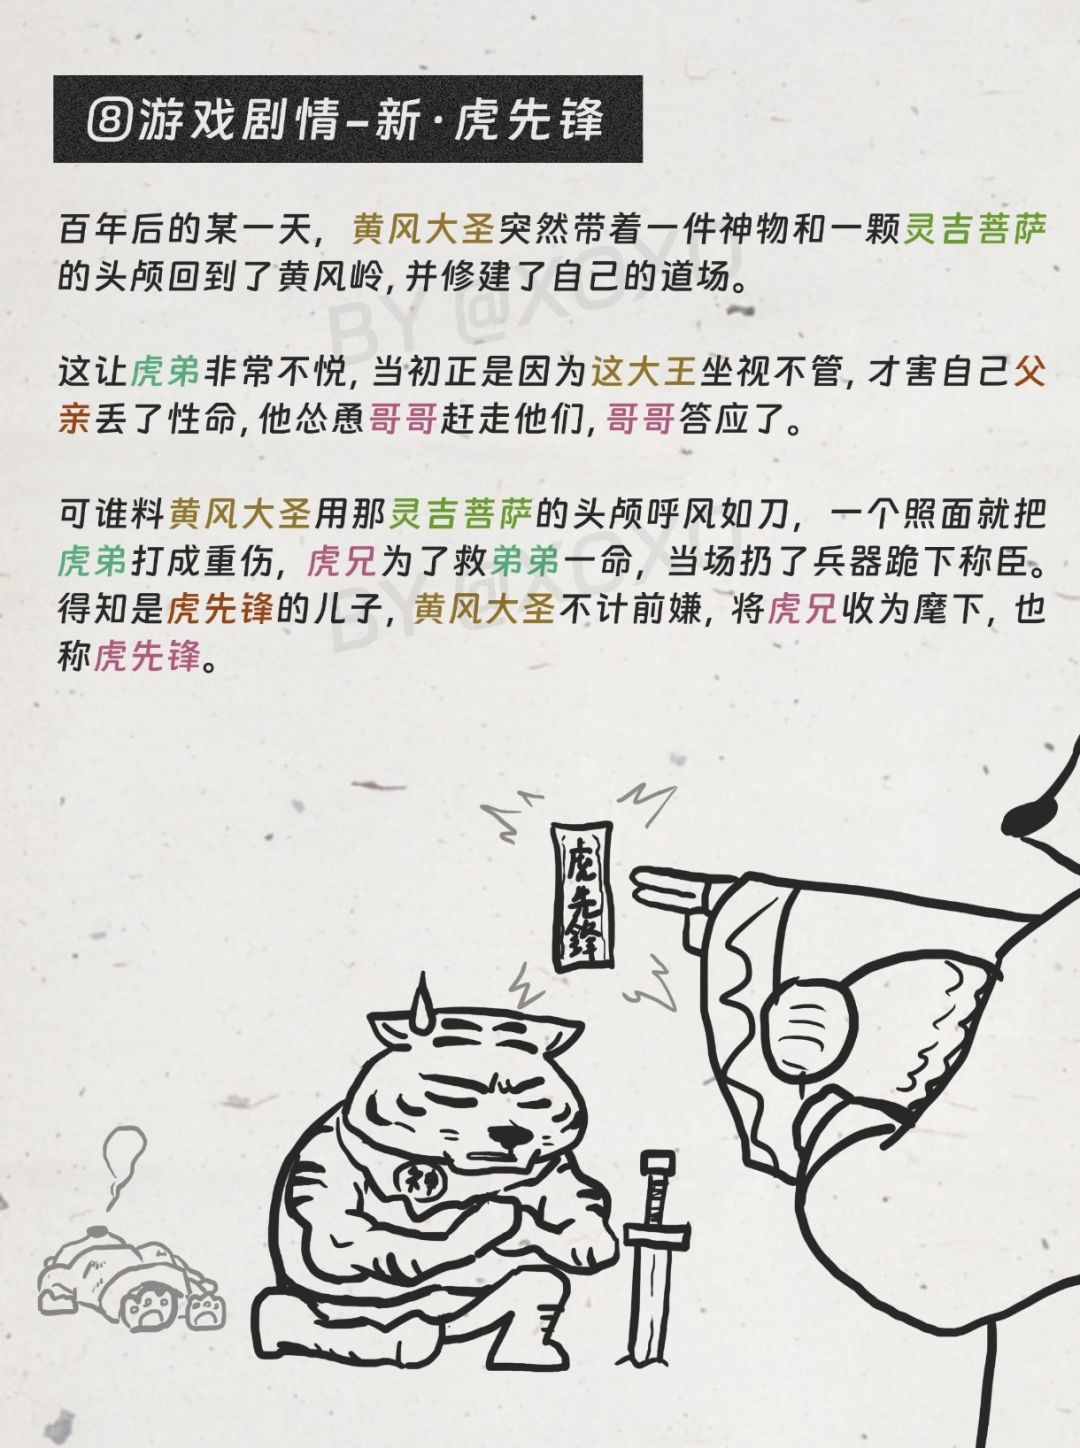 ⑧游戏剧情-新·虎先锋
百年后的某一天，黄风大圣突然带着一件神物和一颗灵吉菩萨
的头颅回到了黄风岭，并修建了自己的道场。
这让虎弟非常不悦，当初正是因为这大王坐视不管，才害自己父
亲丢了性命，他怂恿哥哥赶走他们，哥哥答应了。
可谁料黄风大圣用那灵吉菩萨的头颅呼风如刀，一个照面就把
虎弟打成重伤，虎兄为了救弟弟一命，当场扔了兵器跪下称臣。
得知是虎先锋的儿子，黄风大圣不计前嫌，将虎兄收为麾下，也
称虎先锋。
BY @XOXO
BY @XOXO
虎先鋒
神